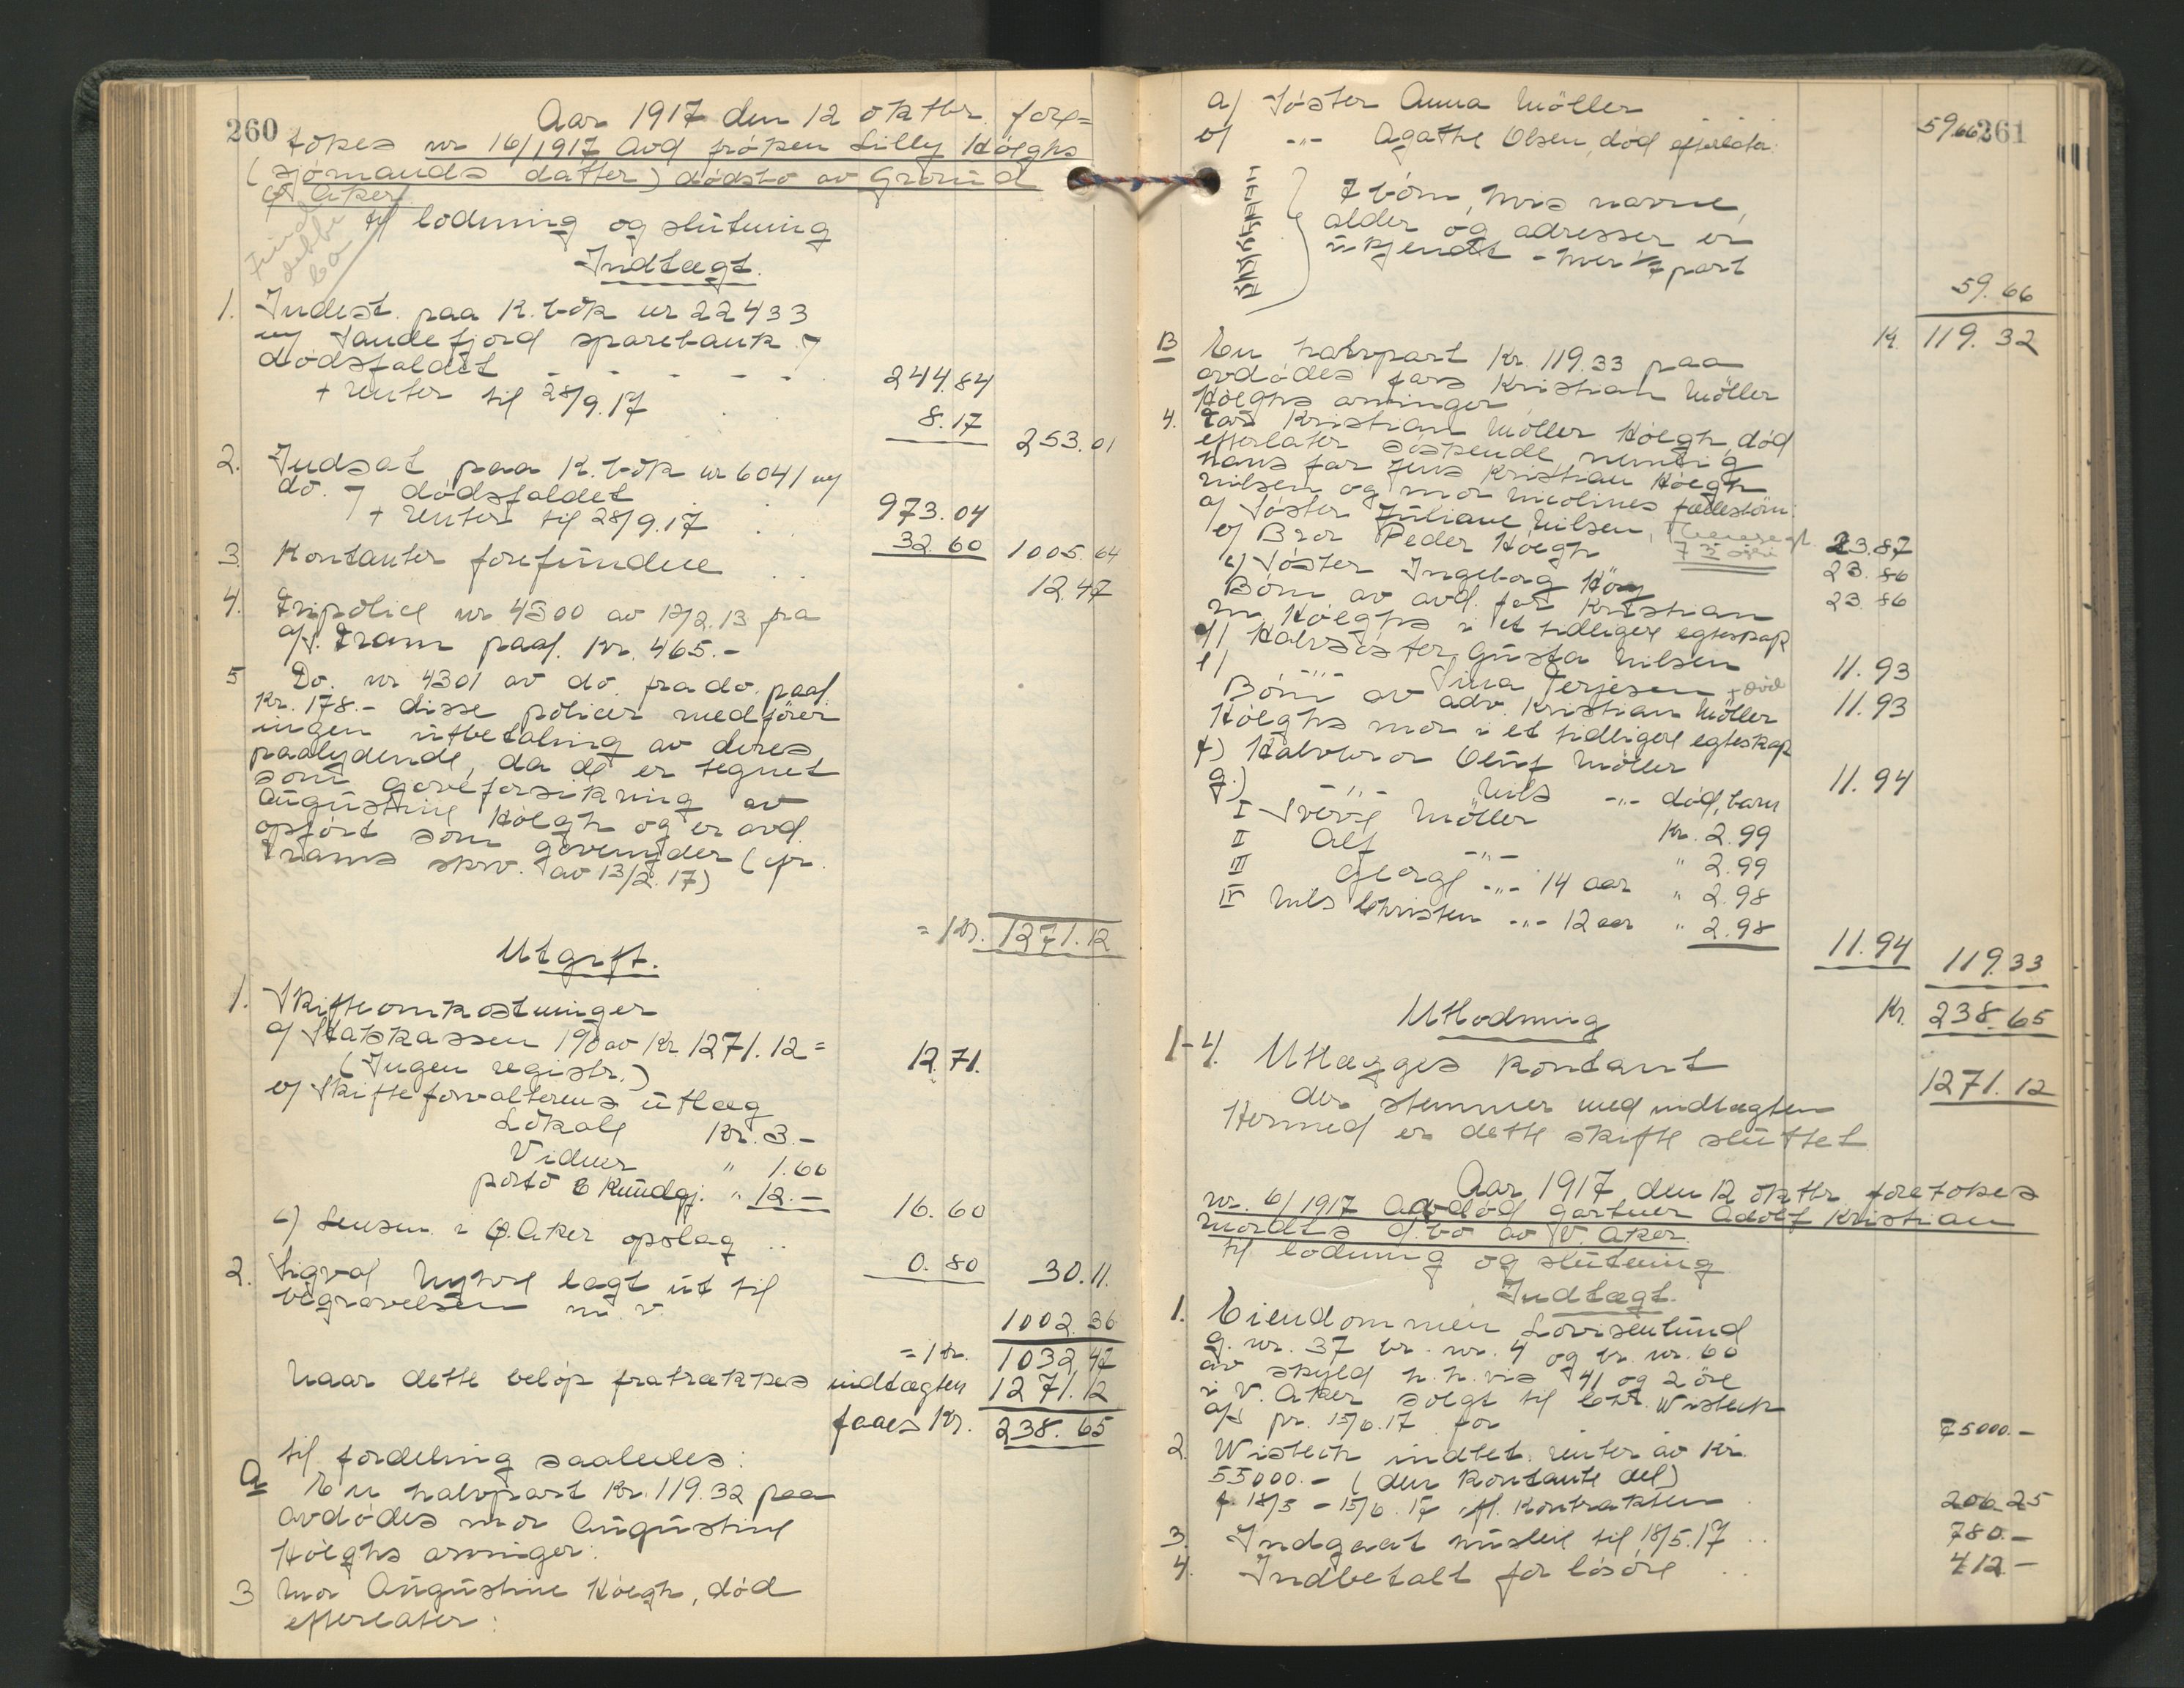 260
Aar 1917 den 12 oktbr. fore=
tokes nr 16/1917 Avd frøken Lilly Höeghs
(sjømands datter) dødsbo av Grorud
Ø. Aker
til lodning og slutning
Indtægt.
1. Indest. paa K. bok nr 22433
m/ Sandefjord sparebank v/
dødsfaldet - - - - - 244.84
+ renter til 28/9.17 8.17 253.01
2. Indsat paa K. bok nr 6041 m/
do. v/ dødsfaldet 973.04
+ renter til 28/9.17 32.60 1005.64
3. Kontanter forefundne 12.47
4. Fripolice nr 4300 av 13/2.13 fra
A/S. Fram paal. Kr. 465.-
5 Do. nr 4301 av do. fra do. paal.
Kr. 178.- disse policer medfører
ingen utbetaling av deres
paalydende, da de er tegnet
som gaveforsikring av
Augustine Höegh og er avd.
opført som gavenyder (cfr.
Frams skrv. av 13/2.17)
= Kr. 1271.12
Utgift.
1. Skifteomkostninger
a) Statskassen 1% av Kr. 1271.12 = 12.71.
(Ingen registr.)
b) Skifteforvalterens utlæg
Lokale Kr. 3.-
Vidner " 1.60
porto & Kundgj. " 12.- 16.60
c) Lensm. i Ø. Aker opslag .. 0.80 30.11.
2. Sigval lagt ut til
begravelsen m. v. 1002.36
= Kr. 1032.47
Naar dette beløp fratrækkes indtægten 1271.12
faaes Kr. 238.65
til fordeling saaledes:
A En halvpart Kr. 119.32 paa
avdødes mor Augustine
Höeghs arvinger:
3 Mor Augustine Höegh, død
efterlater:
261
a) Søster Anna Möller 59.66
b) -"- Agathe Olsen, død efterlater
7 børn, hvis navne,
alder og adresser er
ukjendt - hver 1/7 part
59.66
Kr. 119.32
B En halvpart Kr. 119.33 paa
avdødes fars Kristian Möller
Höeghs arvinger
4. Far Kristian Möller Höegh, død
efterlater søskende nemlig
hans far Jens Kristian Höegh
Nilsen og mor Nicolines fællesbørn:
a) Søster Juliane Nilsen, 23.87
b) Bror Peder Höegh 23.86
c) Søster Ingeborg 23.86
Børn av avd. far Kristian
M. Höeghs i et tidligere egteskap
d) Halvsøster, Gusta Nilsen 11.93
e) -"- Tina Terjesen + død 11.93
Børn av adv. Kristian Möller
Höeghs mor i et tidligere egteskap
f) Halvbror Oluf Möller 11.94
g.) -"- Nils -"- død, barn
I Sverre Möller Kr. 2.99
II Alf -"- " 2.99
III Georg -"- 14 aar " 2.98
IV Nils Christen -"- 12 aar " 2.98
11.94 119.33
Kr. 238.65
Utlodning
1-4. Utlægges kontant 1271.12
der stemmer med indtægten
Hermed er dette skifte sluttet
Aar 1917 den 12 oktbr. foretokes
nr. 6/1917 Avdød gartner Adolf Kristian
d.bo av V. Aker.
til lodning og slutning
Indtægt.
1. Eiendommen Lovisenlund
g. nr. 37 br. nr. 4 og br. nr. 60
av skyld h.h. vis 41 og 2 øre
i V. Aker solgt til Chr. Wistech
A/S pr. 15/6.17 for 75000.-
2. Wistech indbet. renter av Kr.
55000.- (den kontante del)
f. 18/5 - 15/6.17 ifl. Kontrakten 206.25
3. Indgaat husleie til 18/5.17 .. 780.-
4. Indbetalt for løsøre .. 412.-